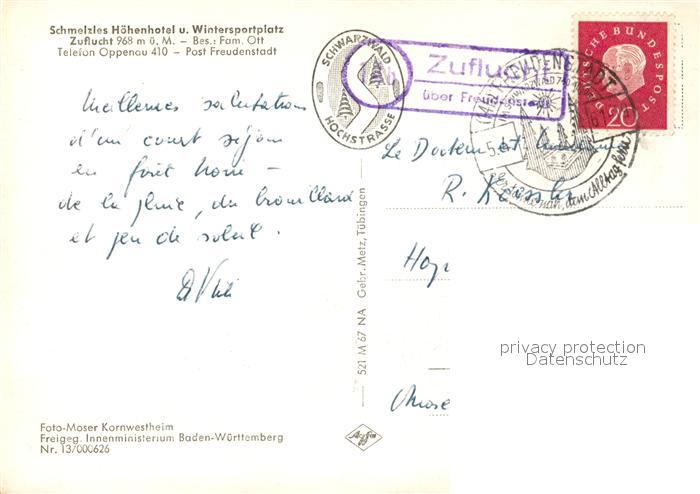 Schmelzles Höhenhotel u. Wintersportplatz
Zuflucht 968 m ü. M. – Bes.: Fam. Ott
Telefon Oppenau 410 – Post Freudenstadt
SCHWARZWALD
HOCHSTRASSE
Zuflucht
über Freudenstadt
FREUDENSTADT
DEUTSCHE BUNDESPOST
20
Meilleures salutations
d'un court séjour
en forêt noire –
de la pluie, du brouillard
et peu de soleil.
Le Docteur et
R.
privacy protection
Datenschutz
521 M 67 NA Gebr. Metz, Tübingen
Foto-Moser Kornwestheim
Freigeg. Innenministerium Baden-Württemberg
Nr. 13/000626
Agfa